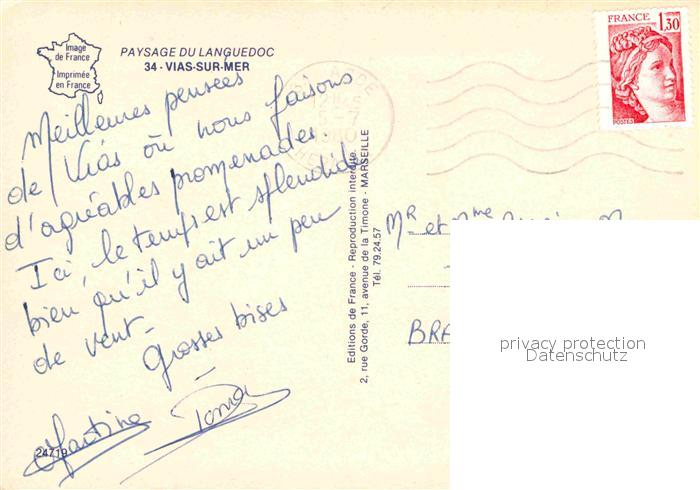 Image
de France
Imprimée
en France
PAYSAGE DU LANGUEDOC
34 - VIAS-SUR-MER
Meilleures pensées
de Vias où nous faisons
d'agréables promenades.
Ici le temps est splendide
bien qu'il y ait un peu
de vent.
Grosses bises
Martine
24719
Editions de France - Reproduction interdite
2, rue Gorde, 11, avenue de la Timone - MARSEILLE
Tél. 79.24.57
FRANCE
1,30
POSTES
Mr et Mme
BRA
privacy protection
Datenschutz